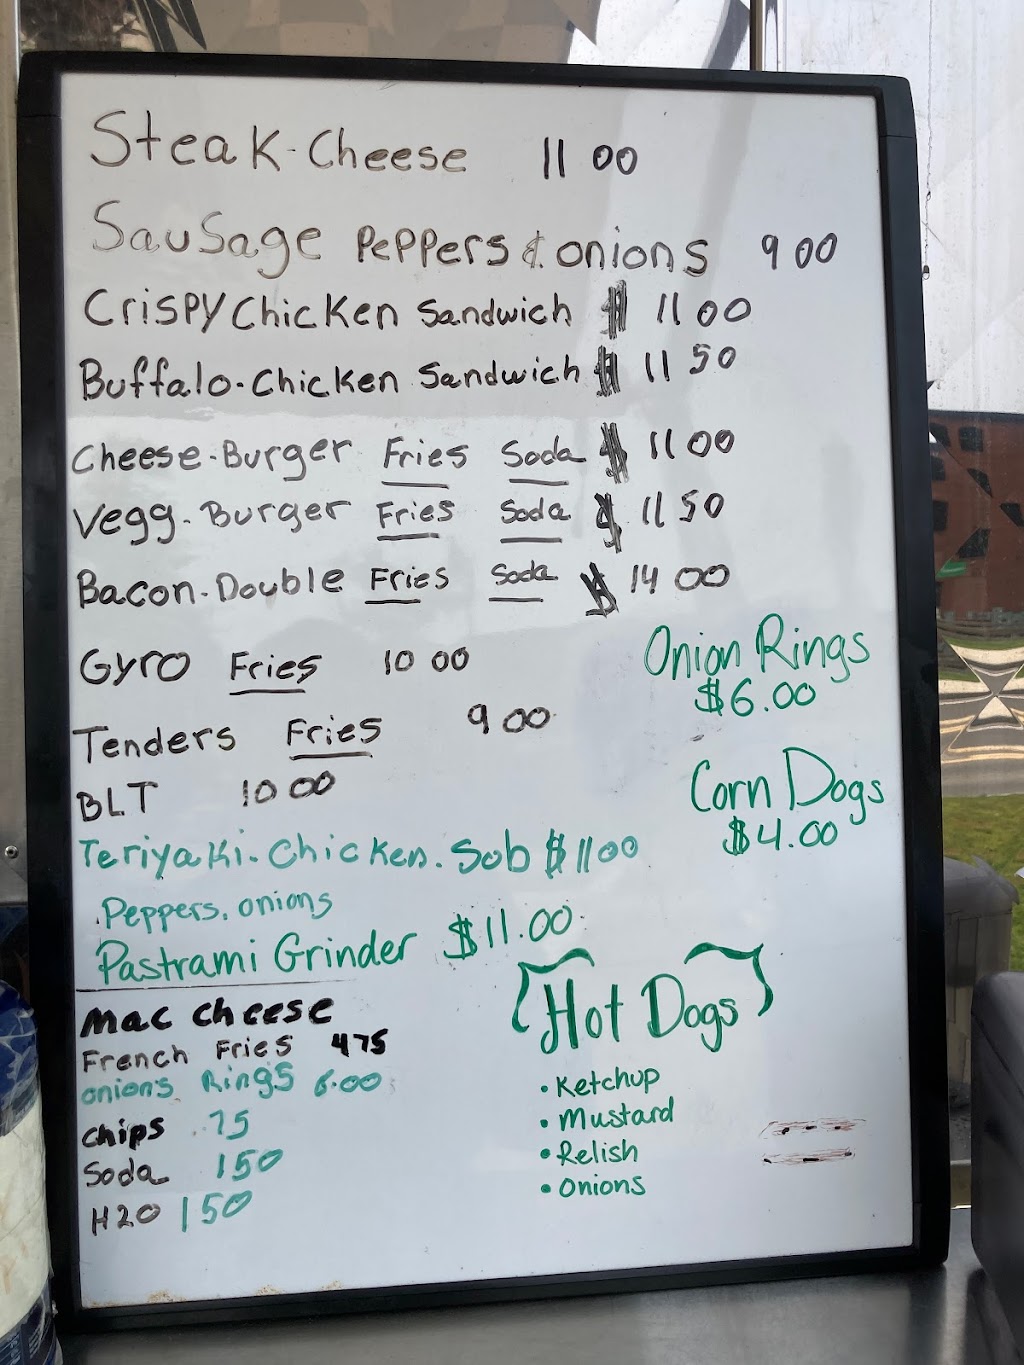 Steak-Cheese 11 00
Sausage Peppers & onions 9 00
Crispy Chicken Sandwich $ 11 00
Buffalo-Chicken Sandwich $ 11 50
Cheese-Burger Fries Soda $ 11 00
Vegg-Burger Fries Soda $ 11 50
Bacon-Double Fries Soda $ 14 00
Gyro Fries 10 00
Tenders Fries 9 00
BLT 10 00
Teriyaki-Chicken.Sub $ 11 00
Peppers, onions
Pastrami Grinder $11.00
Mac Cheese
French Fries 4 75
onions Rings 6.00
Chips .75
Soda 1 50
H2O 1 50
Onion Rings
$6.00
Corn Dogs
$4.00
Hot Dogs
• Ketchup
• Mustard
• Relish
• Onions